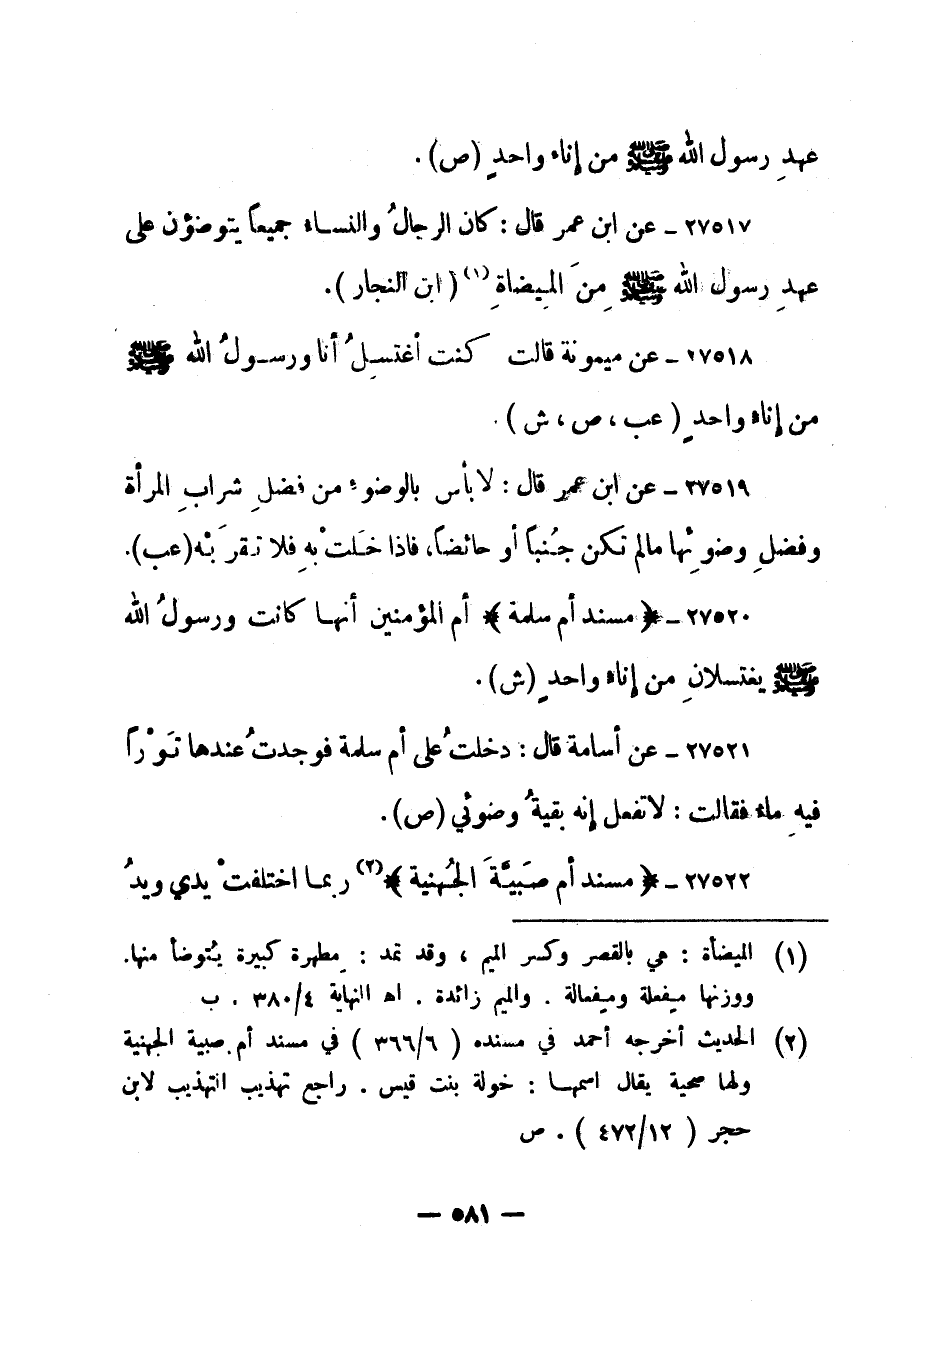 عهدِ رسول الله ﷺ من إناء واحدٍ (ص).
٢٧٥١٧ ـ عن ابن عمر قال : كان الرجالُ والنساء جميعاً يتوضؤن على
عهدِ رسول الله ﷺ مِنَ المِيضاةِ (١) ( ابن النجار ).
٢٧٥١٨ ـ عن ميمونة قالت كنت أغتسِلُ أنا ورسولُ الله ﷺ
من إناء واحدٍ ( عب ، ص ، ش ) .
٢٧٥١٩ ـ عن ابن عمر قال : لا بأس بالوضوء من فضلِ شرابِ المرأة
وفضلِ وضوئِها مالم تكن جُنباً أو حائضاً، فاذا خَلَتْ بهِ فلا تقرَبْه (عب).
٢٧٥٢٠ ـ ﴿ مسند أم سلمة ﴾ أم المؤمنين أنها كانت ورسولُ الله
ﷺ يغتسلانِ من إناء واحدٍ (ش).
٢٧٥٢١ ـ عن أسامة قال : دخلتُ على أم سلمة فوجدتُ عندها تَوْراً
فيهِ ماء فقالت : لا تفعل إنه بقيةُ وضوئي (ص).
٢٧٥٢٢ ـ ﴿ مسند أم صَبِيَّةَ الجُهنية ﴾(٢) ربما اختلفتْ يدي ويدُ
(١) الميضأة : هي بالقصر وكسر الميم ، وقد تمد : مِطهرة كبيرة يُتوضأ منها.
ووزنها مِفعلة ومِفعالة . والميم زائدة . اهـ النهاية ٣٨٠/٤ . ب
(٢) الحديث أخرجه أحمد في مسنده ( ٣٦٦/٦ ) في مسند أم صبية الجهنية
ولها صحبة يقال اسمها : خولة بنت قيس . راجع تهذيب التهذيب لابن
حجر ( ٤٧٢/١٢ ) . ص
— ٥٨١ —